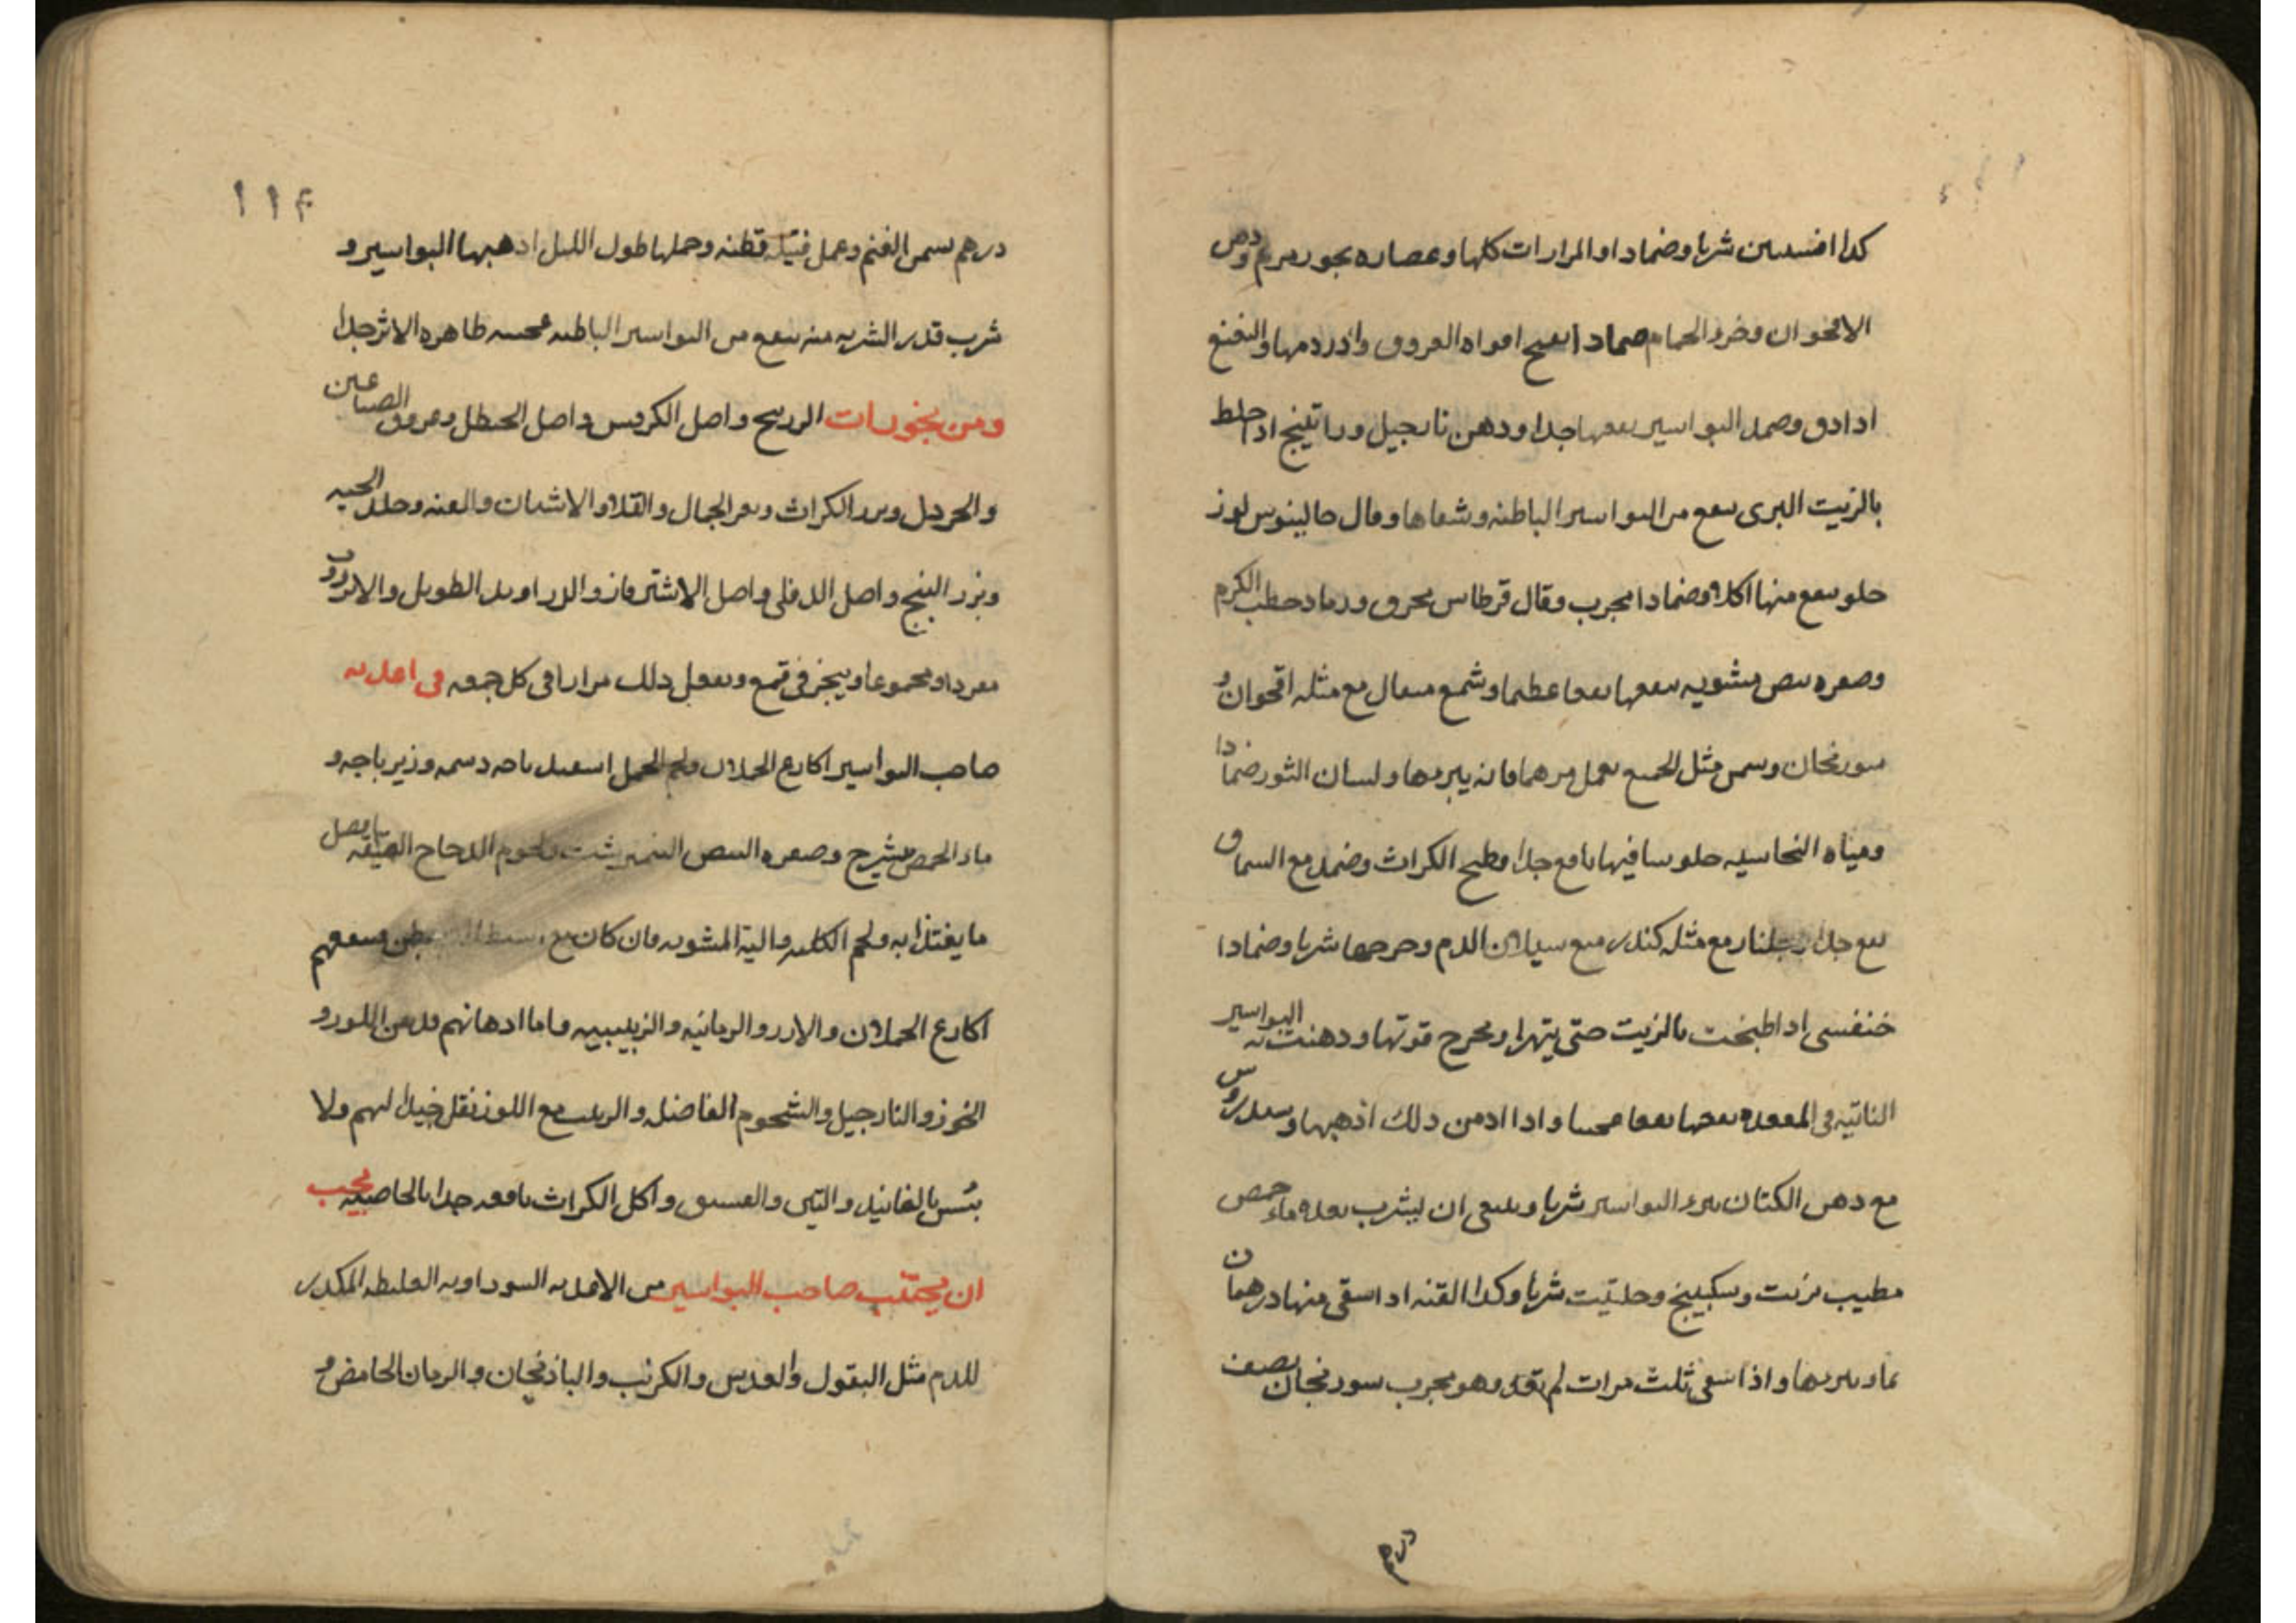 كدا افسسين شربا وضمادا والمرارات كلها وعصاره بجور مريم ودهن
الاقحوان وخرو الحمام صمادا يفتح افواه العروق وادر دمها والنفنع
ادا دق وصمد البواسير نفعها جدا ودهن نارجيل وراتينج ادا خلط
بالزيت البرى ينفع من البواسير الباطنه وشفاها وقال جالينوس لوز
حلو ينفع منها اكلا وضمادا مجرب وقال قرطاس محرق ورماد حطب الكرم
وصفره بيض مشويه ينفعها نفعا عظيما وشمع مثقال مع مثله اقحوان و
سورنجان وسمن مثل الجميع يعمل مرهما فانه يبريها ولسان الثور ضمادا
ومياه النحاسيه جلوسا فيها نافع جدا وطبيخ الكراث وضمد مع السماق
نفع جدا وجلنار مع مثله كندر يمنع سيلان الدم وخروجها شربا وضمادا
خنفسى ادا طبخت بالزيت حتى يتهرا ويخرج قوتها ودهنت به البواسير
الناتيه فى المقعده نفعها نفعا عجيبا وادا ادمن دلك اذهبها وسندروس
مع دهن الكتان يبرء البواسير شربا وينبغى ان يشرب بعده ماء حمص
مطيب بزيت وسكبينج وحلتيت شربا وكدا القنه ادا سقى منها درهمان
بماء يبريها واذا سقى ثلث مرات لم تعد وهو مجرب سورنجان نصف
درهم
١١٤
درهم سمن الغنم وعمل فتيله قطنه وحملها طول الليل اذهبها البواسير و
شرب قدر الشربه منه ينفع من البواسير الباطنه عجيبه ظاهره الاثر جدا
ومن بخورات الزرنيخ واصل الكرفس واصل الحنظل وعروق الصباغين
والخردل وبزر الكراث وبعر الجمال والقلا والاشنان والقنه وجلد الحيه
وبزر البنج واصل الدفلى واصل الاشترغاز والزراوند الطويل والانزروت
مفردا ومجموعا ويبخر فى قمع ويفعل دلك مرارا فى كل جمعه فى اغديه
صاحب البواسير اكارع الحملان ولحم الحمل اسفيدباجه دسمه وزيرباجه و
ماء الحمص بشيرج وصفره البيض النيمرشت ولحوم الدجاج العتيقه افضل
ما يغتذا به ولحم الكلى والية المشويه فان كان مع بطن وينفعهم
اكارع الحملان والارز والرمانيه والزبيبيه واما ادهانهم فدهن اللوز و
الجوز والنارجيل والشحوم الفاضله والزبيب مع اللوز نقل جيد لهم ولا
بئس بالفانيد والتين والفستق واكل الكراث نافعه جدا بالخاصيه يجب
ان يجتنب صاحب البواسير من الاغديه السوداويه الغليظه المكدر
للدم مثل البقول والعدس والكرنب والباذنجان والرمان الحامض و